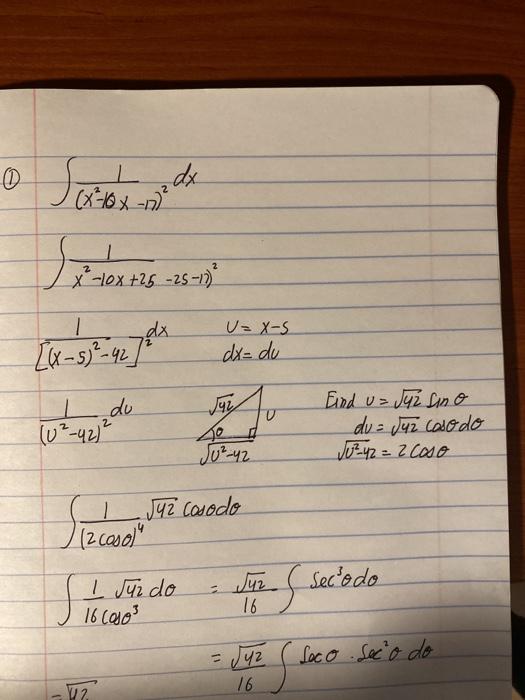 ① ∫ 1/(x²-10x-17)² dx
∫ 1/x²-10x+25-25-17)²
1/[(x-5)²-42]² dx U = x-5
dx = du
1/(U²-42)² du √42 U θ √U²-42 Find U = √42 Sin θ
du = √42 cosθ dθ
√U²-42 = 2 Cos θ
∫ 1/(2 cosθ)⁴ √42 cosθ dθ
∫ 1/16 Cosθ³ √42 dθ = √42/16 ∫ Sec³θ dθ
= √42/16 ∫ Sec θ · Sec²θ dθ
= √42